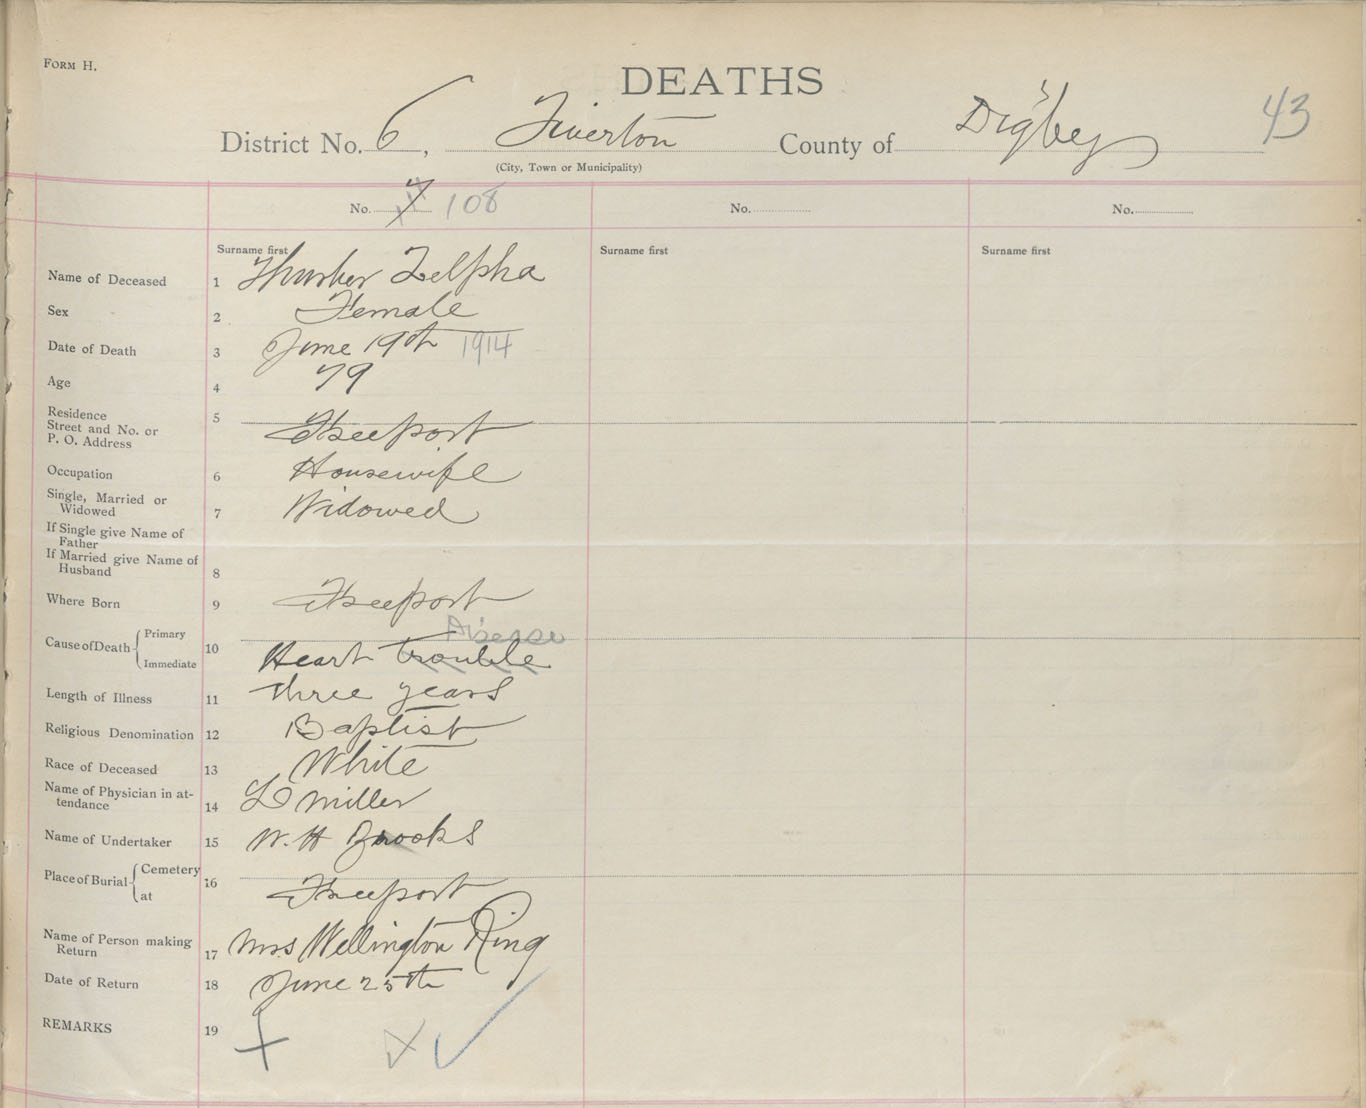 FORM H.
DEATHS
District No. 6, Tiverton County of Digby 43
(City, Town or Municipality)
No. 7 108 No. No.
Surname first Surname first Surname first
Name of Deceased 1 Thurber Zelpha
Sex 2 Female
Date of Death 3 June 19th 1914
Age 4 79
Residence
Street and No. or
P. O. Address 5 Freeport
Occupation 6 Housewife
Single, Married or
Widowed 7 Widowed
If Single give Name of
Father
If Married give Name of
Husband 8
Where Born 9 Freeport
Disease
Cause of Death Primary Immediate 10 Heart trouble
Length of Illness 11 three years
Religious Denomination 12 Baptist
Race of Deceased 13 White
Name of Physician in at-
tendance 14 Miller
Name of Undertaker 15 W. H Brooks
Place of Burial Cemetery at 16 Freeport
Name of Person making
Return 17 Mrs Wellington Ring
Date of Return 18 June 25th
REMARKS 19